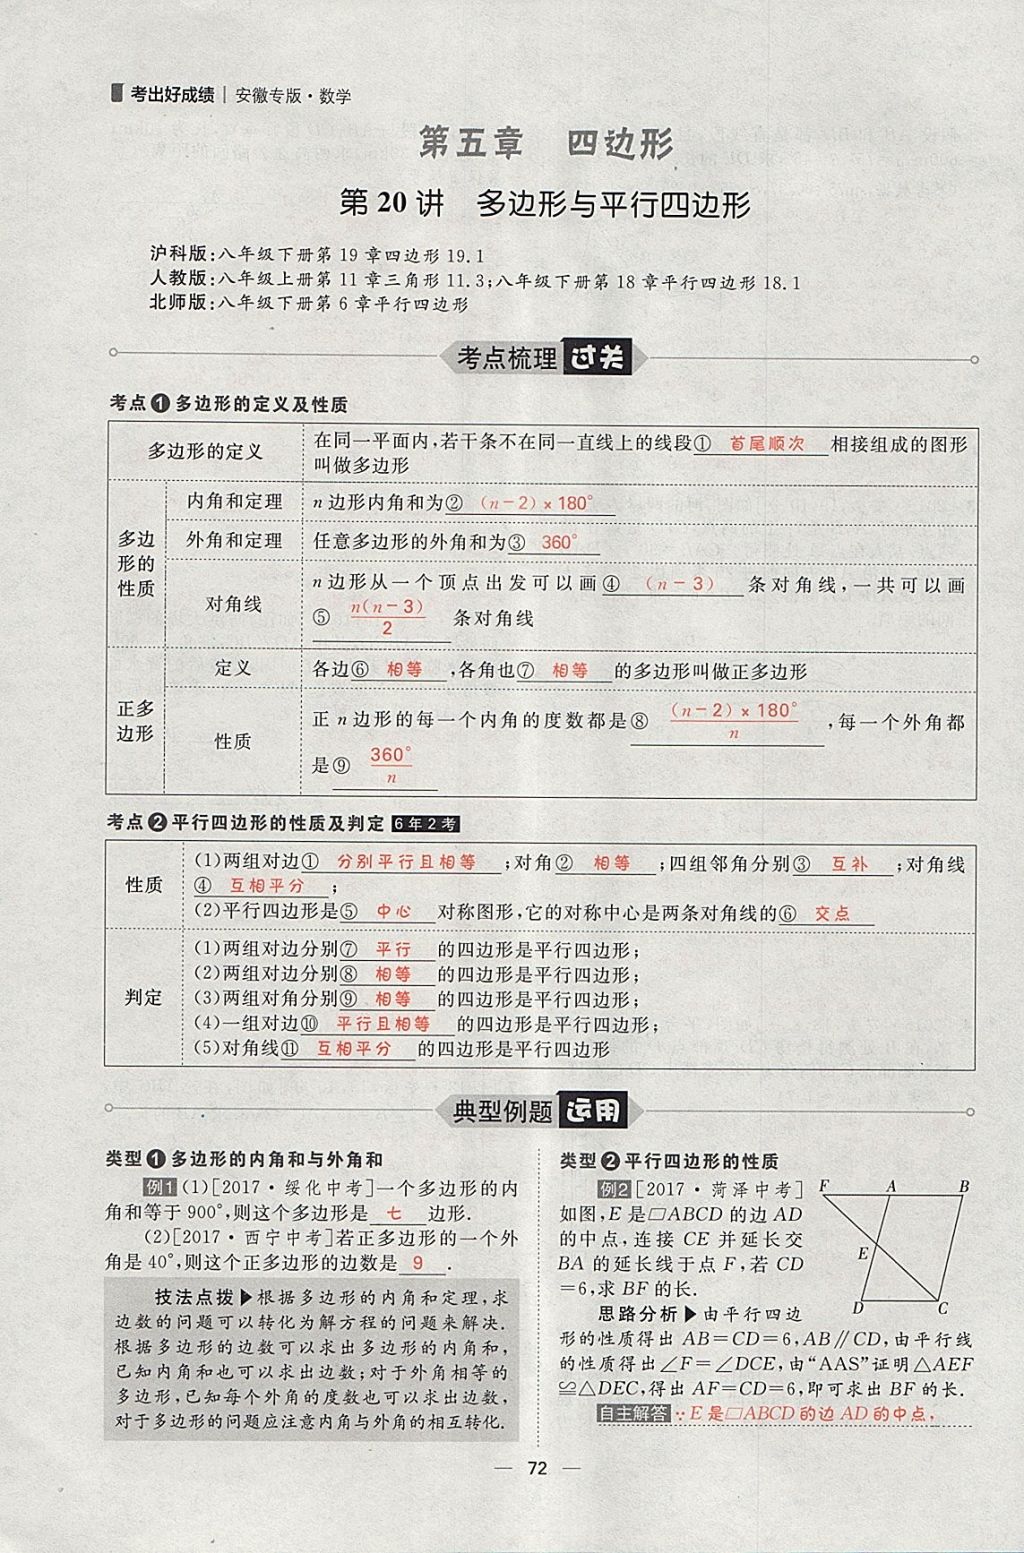 考出好成绩 | 安徽专版·数学
第五章 四边形
第 20 讲 多边形与平行四边形
沪科版:八年级下册第 19 章四边形 19.1
人教版:八年级上册第 11 章三角形 11.3;八年级下册第 18 章平行四边形 18.1
北师版:八年级下册第 6 章平行四边形
考点梳理 过关
考点❶多边形的定义及性质
多边形的定义
在同一平面内,若干条不在同一直线上的线段① 首尾顺次 相接组成的图形
叫做多边形
多边形的性质
内角和定理
n 边形内角和为② (n-2)×180°
外角和定理
任意多边形的外角和为③ 360°
对角线
n 边形从一个顶点出发可以画④ (n-3) 条对角线,一共可以画
⑤ n(n-3)/2 条对角线
正多边形
定义
各边⑥ 相等 ,各角也⑦ 相等 的多边形叫做正多边形
性质
正 n 边形的每一个内角的度数都是⑧ (n-2)×180°/n ,每一个外角都
是⑨ 360°/n
考点❷平行四边形的性质及判定 6年2考
性质
(1)两组对边① 分别平行且相等 ;对角② 相等 ;四组邻角分别③ 互补 ;对角线
④ 互相平分 ;
(2)平行四边形是⑤ 中心 对称图形,它的对称中心是两条对角线的⑥ 交点
判定
(1)两组对边分别⑦ 平行 的四边形是平行四边形;
(2)两组对边分别⑧ 相等 的四边形是平行四边形;
(3)两组对角分别⑨ 相等 的四边形是平行四边形;
(4)一组对边⑩ 平行且相等 的四边形是平行四边形;
(5)对角线⑪ 互相平分 的四边形是平行四边形
典型例题 运用
类型❶多边形的内角和与外角和
例1 (1)[2017·绥化中考]一个多边形的内
角和等于 900°,则这个多边形是 七 边形.
(2)[2017·西宁中考]若正多边形的一个外
角是 40°,则这个正多边形的边数是 9 .
技法点拨▶根据多边形的内角和定理,求
边数的问题可以转化为解方程的问题来解决.
根据多边形的边数可以求出多边形的内角和,
已知内角和也可以求出边数;对于外角相等的
多边形,已知每个外角的度数也可以求出边数,
对于多边形的问题应注意内角与外角的相互转化.
类型❷平行四边形的性质
例2 [2017·菏泽中考]
如图,E 是▱ABCD 的边 AD
的中点,连接 CE 并延长交
BA 的延长线于点 F,若 CD
=6,求 BF 的长.
F A B
E
D C
思路分析▶由平行四边
形的性质得出 AB=CD=6,AB∥CD,由平行线
的性质得出∠F=∠DCE,由“AAS”证明△AEF
≌△DEC,得出 AF=CD=6,即可求出 BF 的长.
自主解答 ∵E 是▱ABCD 的边 AD 的中点,
— 72 —